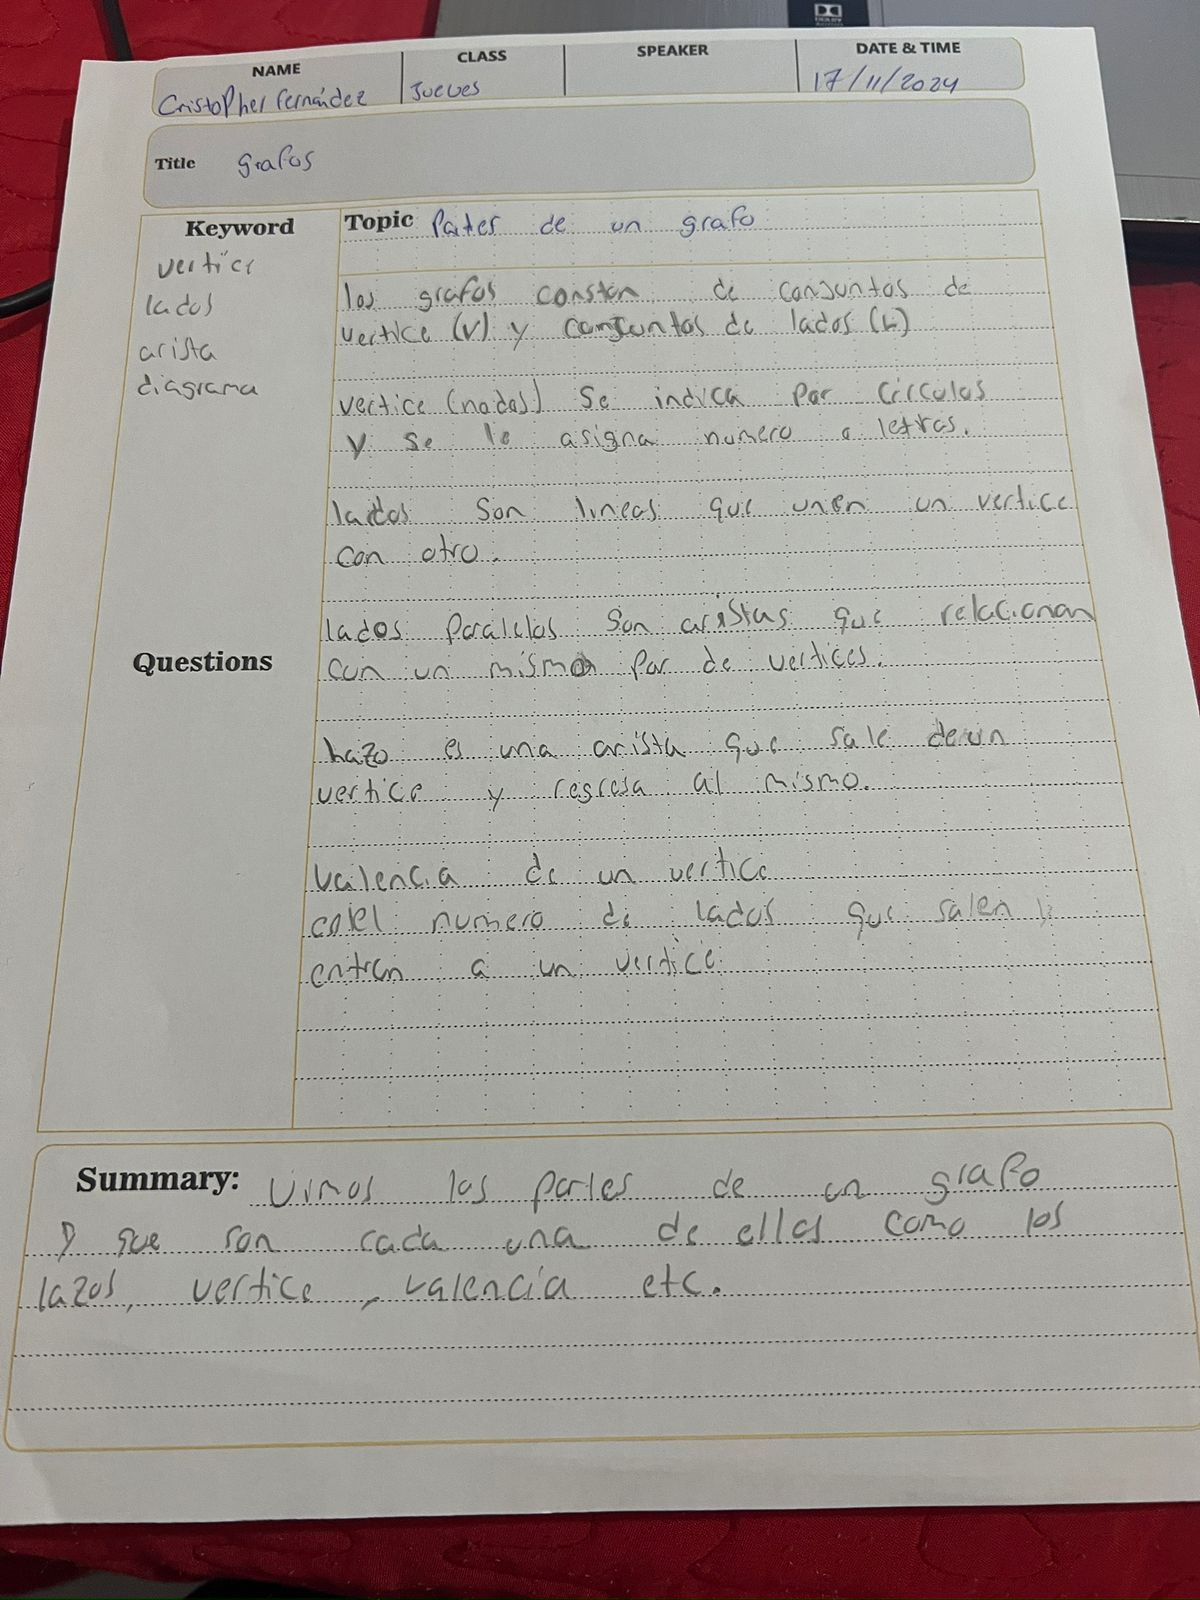 DOLBY
NAME
CLASS
SPEAKER
DATE & TIME
Cristopher Fernández
Jueves
17/11/2024
Title grafos
Keyword
vertice
lados
arista
diagrama
Questions
Topic Partes de un grafo
los grafos constan de conjuntos de
vertice (V) y conjuntos de lados (L)
vertice (nodos) Se indica por circulos
y se le asigna numero o letras.
lados son lineas que unen un vertice
con otro.
lados paralelos son aristas que relacionan
con un mismo par de vertices.
hazo es una arista que sale de un
vertice y regresa al mismo.
Valencia de un vertice
numero de lados que salen y
entran a un vertice.
Summary: Vimos las partes de un grafo
y que son cada una de ellas como los
lazos, vertice, valencia etc.